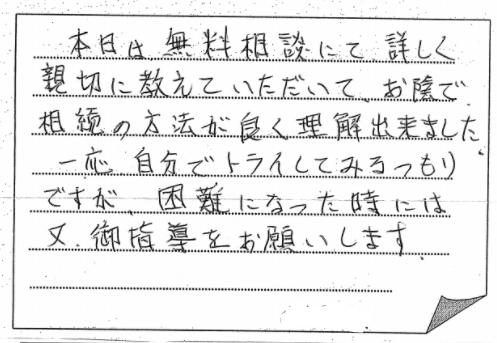 本日は無料相談にて、詳しく
親切に教えていただいて、お陰で
相続の方法が良く理解出来ました。
一応、自分でトライしてみるつもり
ですが、困難になった時には
又、御指導をお願いします。